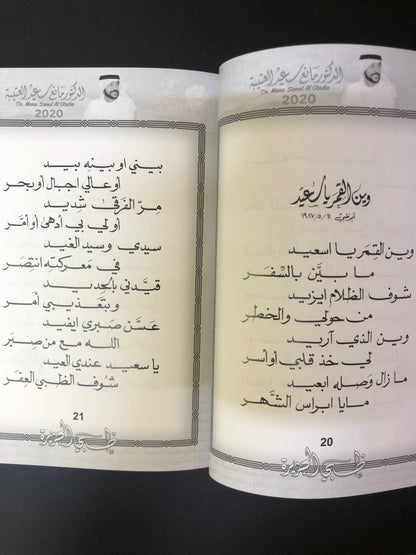 الدكتور مانع سعيد العتيبة
Dr. Mana Saeed Al Otaiba
2020
وين القمر يا سعيد
أبوظبي ١٩٨٧/٥/١١
وين القمر يا اسعيد
ما بيّن بالسّفر
شوف الظلام ايزيد
من حولي والخطر
وين الذي آريد
لي خذ قلبي أو اسر
ما زال وصله ابعيد
مايا ابراس الشهر
20
ظبي الجزيرة
الدكتور مانع سعيد العتيبة
Dr. Mana Saeed Al Otaiba
2020
بيني او بينه بيد
أو عالي اجبال أو بحر
مرّ الفرقى شديد
أو لي بي أدهى أو أمر
سيدي وسيد الغيد
في معركته انتصر
قيدني بالحديد
وبتعذيبي أمر
عسن صبري ايفيد
الله مع من صبر
يا سعيد عندي العيد
شوف الظبي العفر
21
ظبي الجزيرة